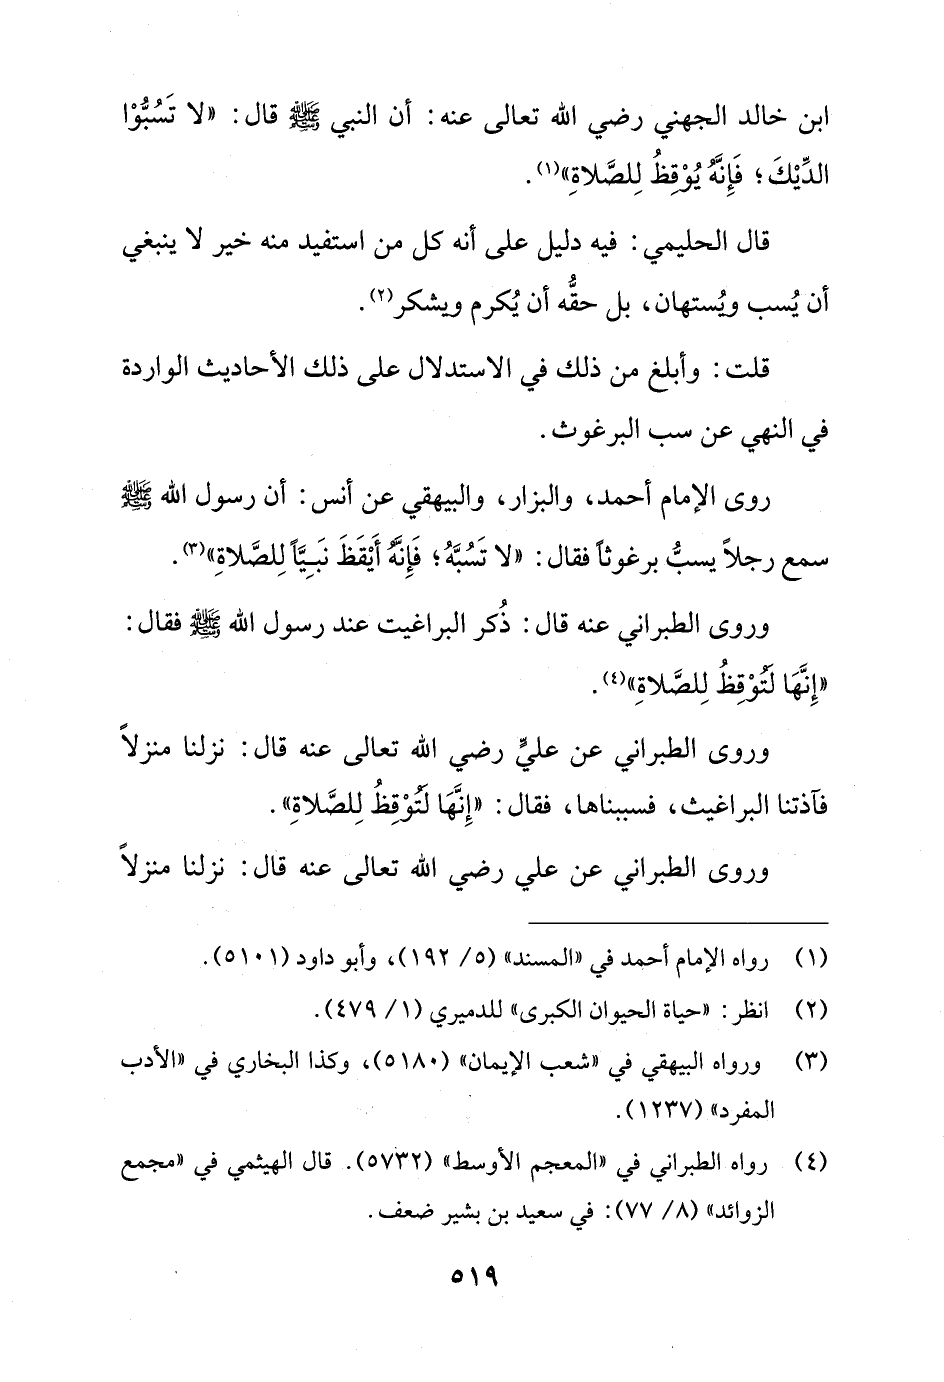 ابن خالد الجهني رضي الله تعالى عنه: أن النبي ﷺ قال: «لا تَسُبُّوْا
الدِّيْكَ؛ فَإِنَّهُ يُوْقِظُ لِلصَّلاةِ»(١).
قال الحليمي: فيه دليل على أنه كل من استفيد منه خير لا ينبغي
أن يُسب ويُستهان، بل حقُّه أن يُكرم ويشكر(٢).
قلت: وأبلغ من ذلك في الاستدلال على ذلك الأحاديث الواردة
في النهي عن سب البرغوث.
روى الإمام أحمد، والبزار، والبيهقي عن أنس: أن رسول الله ﷺ
سمع رجلاً يسبُّ برغوثاً فقال: «لا تَسُبَّهُ؛ فَإِنَّهُ أَيْقَظَ نَبِيَّاً لِلصَّلاةِ»(٣).
وروى الطبراني عنه قال: ذُكر البراغيت عند رسول الله ﷺ فقال:
«إِنَّهَا لَتُوْقِظُ لِلصَّلاةِ»(٤).
وروى الطبراني عن عليٍّ رضي الله تعالى عنه قال: نزلنا منزلاً
فآذتنا البراغيث، فسببناها، فقال: «إِنَّهَا لَتُوْقِظُ لِلصَّلاةِ».
وروى الطبراني عن علي رضي الله تعالى عنه قال: نزلنا منزلاً
(١) رواه الإمام أحمد في «المسند» (٥/ ١٩٢)، وأبو داود (٥١٠١).
(٢) انظر: «حياة الحيوان الكبرى» للدميري (١/ ٤٧٩).
(٣) ورواه البيهقي في «شعب الإيمان» (٥١٨٠)، وكذا البخاري في «الأدب
المفرد» (١٢٣٧).
(٤) رواه الطبراني في «المعجم الأوسط» (٥٧٣٢). قال الهيثمي في «مجمع
الزوائد» (٨/ ٧٧): في سعيد بن بشير ضعف.
٥١٩